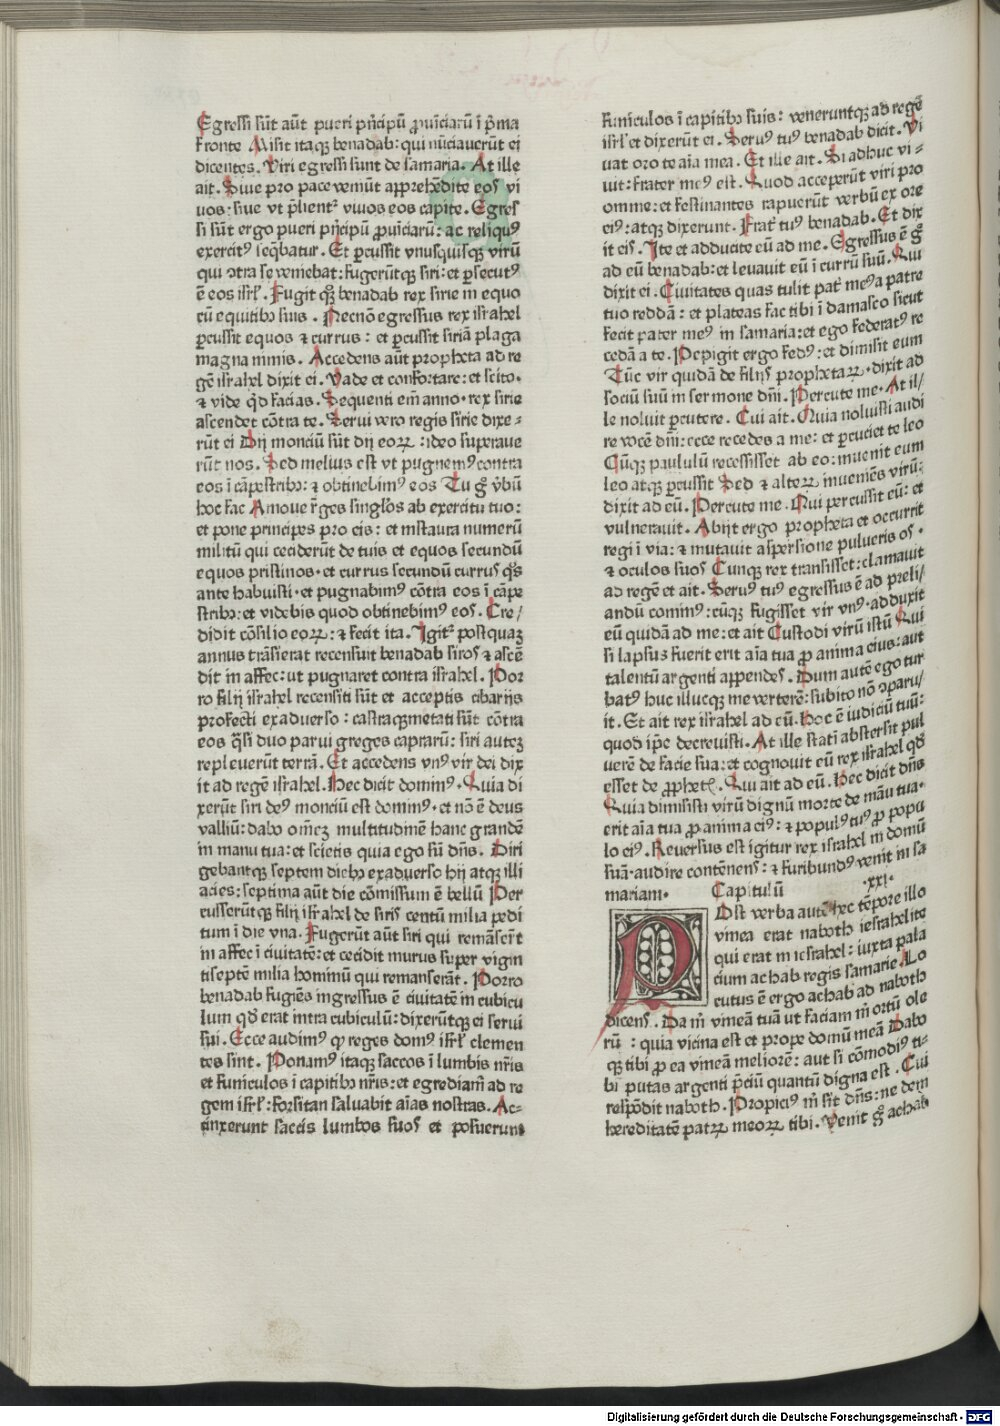 Egressi sūt aūt pueri pñcipū ꝓuīciarū ī p̄ma
fronte Misit itaqꝫ benadab: qui nūciauerūt ei
dicentes. Viri egressi sunt de samaria. At ille
ait. Siue pro pace veniūt apprehēdite eos vi
uos: siue vt p̄lient᷑ viuos eos capite. Egres
si sūt ergo pueri pñcipū ꝓuīciarū: ac reliquꝰ
exercitꝰ seq̄batur. Et percussit vnusquisqꝫ virū
qui ɔtra se veniebat: fugerūtqꝫ siri: et ꝑsecutꝰ
ē eos isrł. Fugit qꝫ benadab rex sirie in equo
cū equitibꝫ suis. Necnō egressus rex israhel
ꝑcussit equos ⁊ currus: et ꝑcussit siriā plaga
magna nimis. Accedens aūt propheta ad re
gē israhel dixit ei. Vade et confortare: et scito.
⁊ vide qd̄ facias. Sequenti em̄ anno. rex sirie
ascendet cōtra te. Serui vero regis sirie dixe⸗
rūt ei Dij monciū sūt dij eoꝝ: ideo superaue
rūt nos. Sed melius est vt pugnemꝰ contra
eos ī cāpestribꝫ: ⁊ obtinebimꝰ eos Tu gͦ v̄bū
hoc fac Amoue r̄ges singl̓os ab exercitu tuo:
et pone principes pro eis: et instaura numerū
militū qui ceciderūt de tuis et equos secundū
equos pristinos. et currus secundū currus qͦs
ante habuisti. et pugnabimꝰ cōtra eos ī cāpe
stribꝫ: et videbis quod obtinebimꝰ eos. Cre/
didit cōsilio eoꝝ: ⁊ fecit ita. Igit᷑ postquaꝫ
annus trāsierat recensuit benadab siros ⁊ ascē
dit in affec: ut pugnaret contra israhel. Por
ro filij israhel recensiti sūt et acceptis cibarijs
profecti exaduerso: castraqꝫmetati sūt cōtra
eos q̄si duo parui greges caprarū: siri auteꝫ
repleuerūt terrā. Et accedens vnꝰ vir dei dix
it ad regē israhel. Hec dicit dominꝰ. Quia di
xerūt siri deꝰ monciū est dominꝰ. et nō ē deus
valliū: dabo om̄eꝫ multitudinē hanc grandē
in manu tua: et scietis quia ego sū dn̄s. Diri
gebantqꝫ septem diebꝫ exaduerso hij atqꝫ illi
acies: septima aūt die cōmissum ē bellū Per
cusserūtqꝫ filij israhel de siris centū milia pedi
tum ī die vna. Fugerūt aūt siri qui remāser̄t
in affec ī ciuitatē: et cecidit murus super vigin
tiseptē milia hominū qui remanserāt. Porro
benadab fugiēs ingressus ē ciuitatē in cubicu
lum qd̄ erat intra cubiculū: dixerūtqꝫ ei serui
sui. Ecce audimꝰ qꝫ reges domꝰ isrł clemen
tes sint. Ponamꝰ itaqꝫ saccos ī lumbis nr̄is
et funiculos ī capitibꝫ nr̄is: et egrediam̄ ad re
gem isrł: forsitan saluabit aīas nostras. Ac⸗
cinxerunt saccis lumbos suos et posuerunt
funiculos ī capitibꝫ suis: veneruntqꝫ ad regē
isrł et dixerūt ei. Seruꝰ tuꝰ benadab dicit. Vi
uat oro te aīa mea. Et ille ait. Si adhuc vi⸗
uit: frater meꝰ est. Quod acceperūt viri pro
omine: et festinantes rapuerūt verbū ex ore
eiꝰ: atqꝫ dixerunt. Frat᷑ tuꝰ benadab. Et dix
it eis. Ite et adducite eū ad me. Egressus ē gͦ
ad eū benadab: et leuauit eū ī currū suū. Qui
dixit ei. Ciuitates quas tulit pat᷑ meꝰ a patre
tuo reddā: et plateas fac tibi ī damasco sicut
fecit pater meꝰ in samaria: et ego federatꝰ re
cedā a te. Pepigit ergo fedꝰ: et dimisit eum
Tūc vir quidā de filijs prophetaꝝ. dixit ad
sociū suū in sermone dn̄i. Percute me. At il/
le noluit ꝑcutere. Cui ait. Quia noluisti audi
re vocē dn̄i: ecce recedes a me: et ꝑcuciet te leo
Cūqꝫ paululū recessisset ab eo: inuenit eum
leo atqꝫ ꝑcussit Sed ⁊ alteꝝ inueniēs virū:
dixit ad eū. Percute me. Qui percussit eū: et
vulnerauit. Abijt ergo propheta et occurrit
regi ī via: ⁊ mutauit aspersione pulueris os.
⁊ oculos suos Cunqꝫ rex transisset: clamauit
ad regē et ait. Seruꝰ tuꝰ egressus ē ad preli/
andū cominꝰ: cūqꝫ fugisset vir vnꝰ. adduxit
eū quidā ad me: et ait Custodi virū istū Qui
si lapsus fuerit erit aīa tua ꝓ anima eius: aut
talentū argenti appendes. Dum autē ego tur
batꝰ huc illucqꝫ me verterē: subito nō ɔparu/
it. Et ait rex israhel ad eū. Hoc ē iudiciū tuū:
quod ip̄e decreuisti. At ille statī abstersit pul
uerē de facie sua: et cognouit eū rex israhel qd̄
esset de ꝓphet̄. Qui ait ad eū. Hec dicit dn̄s
Quia dimisisti virū dignū morte de māu tua.
erit aīa tua ꝓ anima eiꝰ: ⁊ populꝰ tuꝰ ꝓ popu
lo eiꝰ. Reuersus est igitur rex israhel in domū
suā. audire contēnens: ⁊ furibundꝰ venit in sa
mariam. Capitulū .xxi.
POst verba autē hec tēpore illo
vinea erat naboth iesrahelite
qui erat in iesrahel: iuxta pala
cium achab regis samarie. Lo
cutus ē ergo achab ad naboth
dicens. Da m̄ vineā tuā ut faciam m̄ ortū ole
rū: quia vicina est et prope domū meā Dabo
qꝫ tibi ꝓ ea vineā meliorē: aut si cōmodiꝰ ti⸗
bi putas argenti p̄ciū quantū digna est. Cui
respōdit naboth. Propiciꝰ m̄ sit dn̄s: ne dem
hereditatē patꝝ meoꝝ tibi. Venit gͦ achab
Digitalisierung gefördert durch die Deutsche Forschungsgemeinschaft - DFG